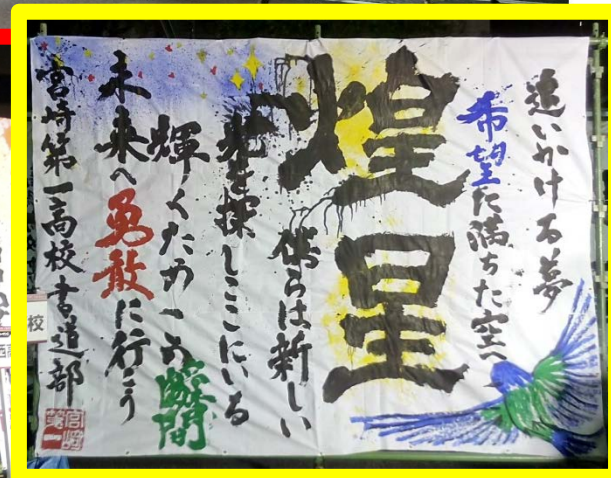 追いかける夢
希望に満ちた空へ
煌星
僕らは新しい
光を探しここにいる
輝くための瞬間
未来へ勇敢に行こう
宮崎第一高校書道部
宮崎
第一
校